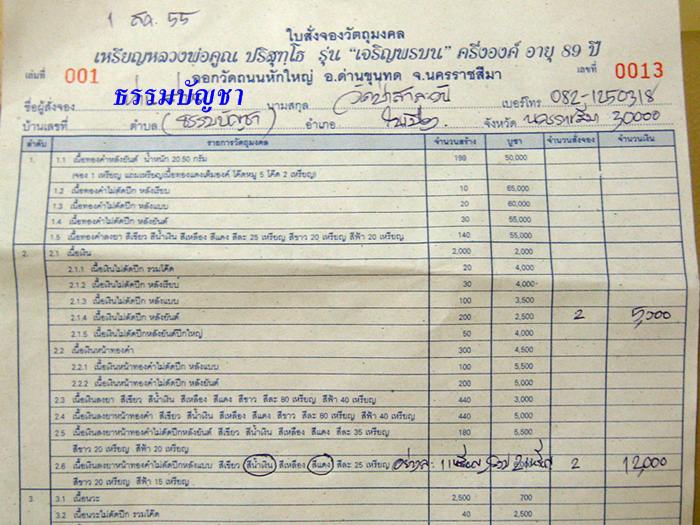 1 ส.ค. 55
ใบสั่งจองวัตถุมงคล
เหรียญหลวงพ่อคูณ ปริสุทฺโธ รุ่น “เจริญพรบน” ครึ่งองค์ อายุ 89 ปี
เล่มที่ 001 ออกวัดถนนหักใหญ่ อ.ด่านขุนทด จ.นครราชสีมา เลขที่ 0013
ธรรมบัญชา
ชื่อผู้สั่งจอง นามสกุล วัดป่าสาลวัน เบอร์โทร 082-1250318
บ้านเลขที่ ตำบล (ธรรมบัญชา) อำเภอ ในเมือง จังหวัด นครราชสีมา 30000
ลำดับ รายการวัตถุมงคล จำนวนสร้าง บูชา จำนวนสั่งจอง จำนวนเงิน
1. 1.1 เนื้อทองคำหลังยันต์ น้ำหนัก 20.50 กรัม 199 50,000
(จอง 1 เหรียญ แถมเหรียญเนื้อทองแดงเต็มองค์ โค๊ตหมู 5 โค๊ต 2 เหรียญ)
1.2 เนื้อทองคำไม่ตัดปีก หลังเรียบ 10 65,000
1.3 เนื้อทองคำไม่ตัดปีก หลังแบบ 20 60,000
1.4 เนื้อทองคำไม่ตัดปีก หลังยันต์ 30 55,000
1.5 เนื้อทองคำลงยา สีเขียว สีน้ำเงิน สีเหลือง สีแดง สีละ 25 เหรียญ สีขาว 20 เหรียญ สีฟ้า 20 เหรียญ 140 55,000
2. 2.1 เนื้อเงิน 2,000 2,000
2.1.1 เนื้อเงินไม่ตัดปีก รวมโค๊ต 20 4,000
2.1.2 เนื้อเงินไม่ตัดปีก หลังเรียบ 30 4,000
2.1.3 เนื้อเงินไม่ตัดปีก หลังแบบ 100 3,500
2.1.4 เนื้อเงินไม่ตัดปีก หลังยันต์ 200 2,500 2 5,000
2.1.5 เนื้อเงินไม่ตัดปีกหลังยันต์ปีกใหญ่ 50 4,000
2.2 เนื้อเงินหน้าทองคำ 300 4,500
2.2.1 เนื้อเงินหน้าทองคำไม่ตัดปีก หลังแบบ 100 5,500
2.2.2 เนื้อเงินหน้าทองคำไม่ตัดปีก หลังยันต์ 200 5,000
2.3 เนื้อเงินลงยา สีเขียว สีน้ำเงิน สีเหลือง สีแดง สีขาว สีละ 80 เหรียญ สีฟ้า 40 เหรียญ 440 3,000
2.4 เนื้อเงินลงยาหน้าทองคำ สีเขียว สีน้ำเงิน สีเหลือง สีแดง สีขาว สีละ 80 เหรียญ สีฟ้า 40 เหรียญ 440 5,000
2.5 เนื้อเงินลงยาหน้าทองคำไม่ตัดปีกหลังยันต์ สีเขียว สีน้ำเงิน สีเหลือง สีแดง สีละ 35 เหรียญ 180 5,500
สีขาว 20 เหรียญ สีฟ้า 20 เหรียญ
2.6 เนื้อเงินลงยาหน้าทองคำไม่ตัดปีกหลังแบบ สีเขียว สีน้ำเงิน สีเหลือง สีแดง สีละ 25 เหรียญ อย่างละ 1 เหรียญ รวม 2 เหรียญ 2 12,000
สีขาว 20 เหรียญ สีฟ้า 15 เหรียญ
3. 3.1 เนื้อนวะ 2,500 700
3.2 เนื้อนวะไม่ตัดปีก รวมโค๊ต 40 2,500